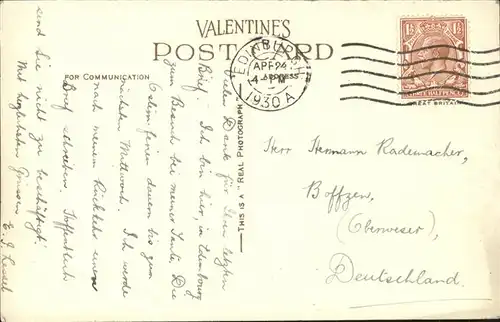 VALENTINES
POST CARD
FOR COMMUNICATION
ADDRESS
EDINBURGH
APR 24
4- PM
1930 A
THIS IS A "REAL PHOTOGRAPH"
Vielen Dank für Ihren letzten
Brief. Ich bin hier, in Edinbourg
zum Besuch bei meiner Tante. Die
Osterferien dauern bis zum
nächsten Mittwoch. Ich werde
nach meinen Rückkehr einen
Brief schreiben. Hoffentlich
sind Sie nicht zu beschäftigt.
Mit begleiteten Grüssen
E. J.
Herr Hermann Rademacher,
Boffzen,
(Oberweser),
Deutschland.